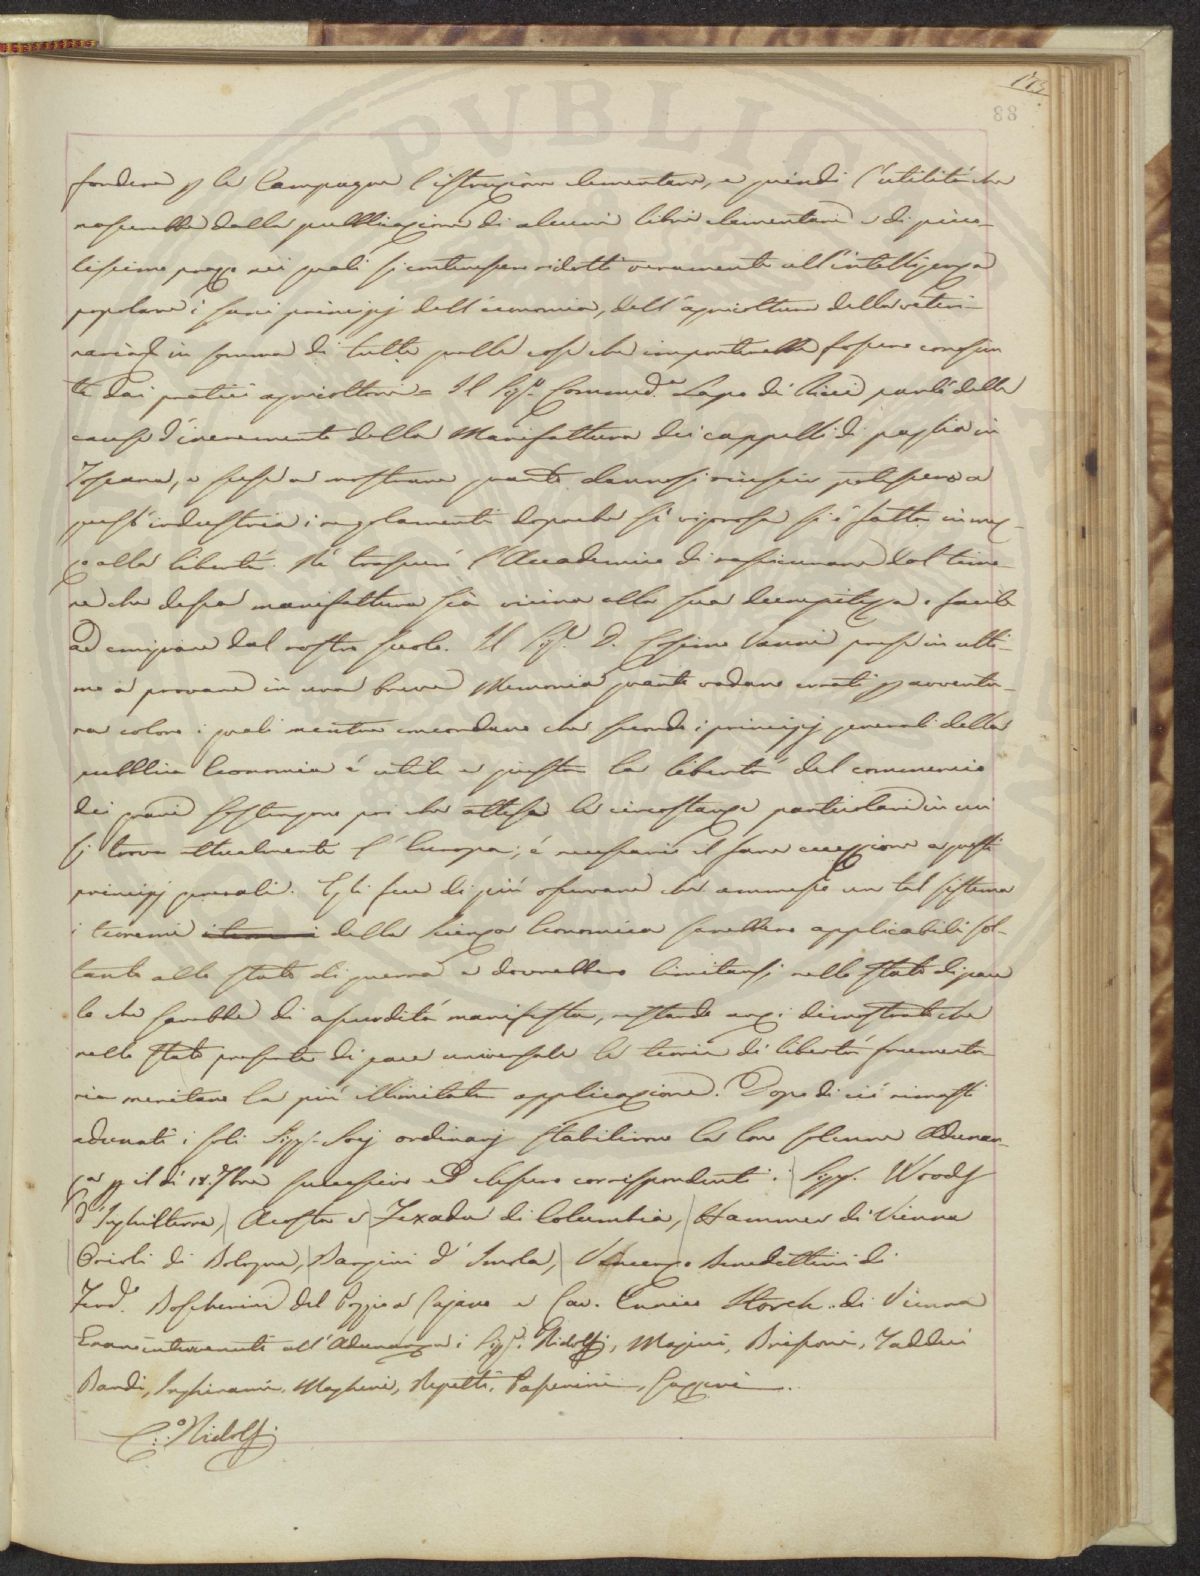 173
88
PVBLICA
fondere p le Campagne l'istruzione elementare, e quindi l'utilità che
nascerebbe dalla pubblicazione di alcuni libri elementari e di picco-
lissimo prezzo nei quali si contenessero ridotti veramente all'intelligenza
popolare i sani principj dell'economia, dell'agricoltura della veteri-
naria ed in somma di tutte quelle cose che importerebbe fossero conosciu
te dai pratici agricoltori = Il Sig.r Commend.e Lapo de' Ricci parlò delle
cause d'incremento della Manifattura dei cappelli di paglia in
Toscana, e prese a mostrare quanto dannosi riuscir potessero a
quest'industria i regolamenti dopoche sì vigorosa si è fatta in mez-
zo alla libertà. Nè trascurò l'Accademico di rassicurare dal timo-
re che dessa manifattura sia vicina alla sua decrepitezza e facile
ad emigrare dal nostro suolo. Il Sig.r D. Cosimo Vanni prese in ulti-
mo a provare in una breve Memoria quanto vadano errati p avventu-
ra coloro i quali mentre concordano che secondo i principj generali della
pubblica Economia è utile e giusta la libertà del commercio
dei grani sostengono poi che attese le circostanze particolari in cui
si trova attualmente l'Europa, è necessario il fare eccezione a questi
principj generali. Egli fece di più osservare che ammesso un tal sistema
i teoremi della Scienza Economica sarebbero applicabili sol-
tanto allo stato di guerra e dovrebbero limitarsi nello stato di pace
lo che sarebbe di assurdità manifesta, restando anzi dimostrato che
nello stato presente di pace universale le teorie di libertà frumenta
ria meritano la più illimitata applicazione. Dopo di ciò rimasti
adunati i soli Sigg.ri Socj ordinarj stabilirono la loro solenne Adunan-
za p il dì 18. 7bre successivo ed elessero corrispondenti i Sigg. Woods
d'Inghilterra, Acosta e Texada di Columbia, Hammer di Vienna
Orioli di Bologna, Bargini d'Imola, Vincenzo Benedettini di
Ferd.o Boscherini del Poggio a Cajano e Cav. Enrico Storck di Vienna
Erano intervenuti all'Adunanza i Sigg.ri Ridolfi, Majini, Taddei
Bardi, Inghirami, Magheri, Repetti, Passerini, Gazzeri
C.o Ridolfi